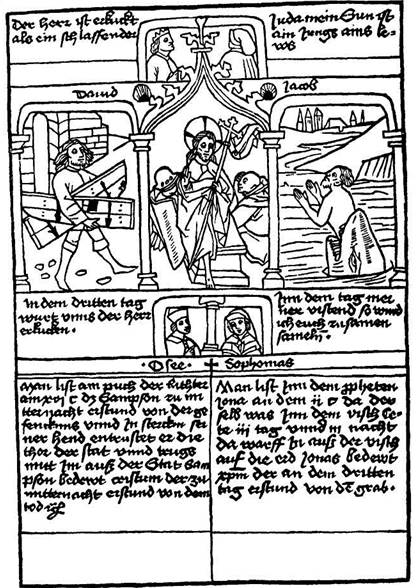 Der herr ist erkuckt
als ein schlaffender
Juda mein Sun ist
ain Jungs ains le-
wos
Dauid
Jacob
in dem dritten tag
wurt vnns der herr
erkucken.
Inn dem tag mei
ner vrstend so wird
ich euch zusamen
sameln.
Osee.
Sophonias
Man list am puch der Richter
am xvi c dz Sampson zu mi
ternacht erstund von der ge
fencknus vnnd In stercken sei
ner hend entrustet er die
thor der stat vnnd trugs
mitt Im auß der Stat Sam
pson bedewt cristum der zu
mitternacht erstund von dem
tod
Man list Inn dem propheten
Jona an dem ii c da der
selb was Inn dem visch be
te iii tag vnnd iii nacht
da warff In auß der visch
auf die erd Jonas bedewt
xpm der an dem dritten
tag erstund von dē grab.